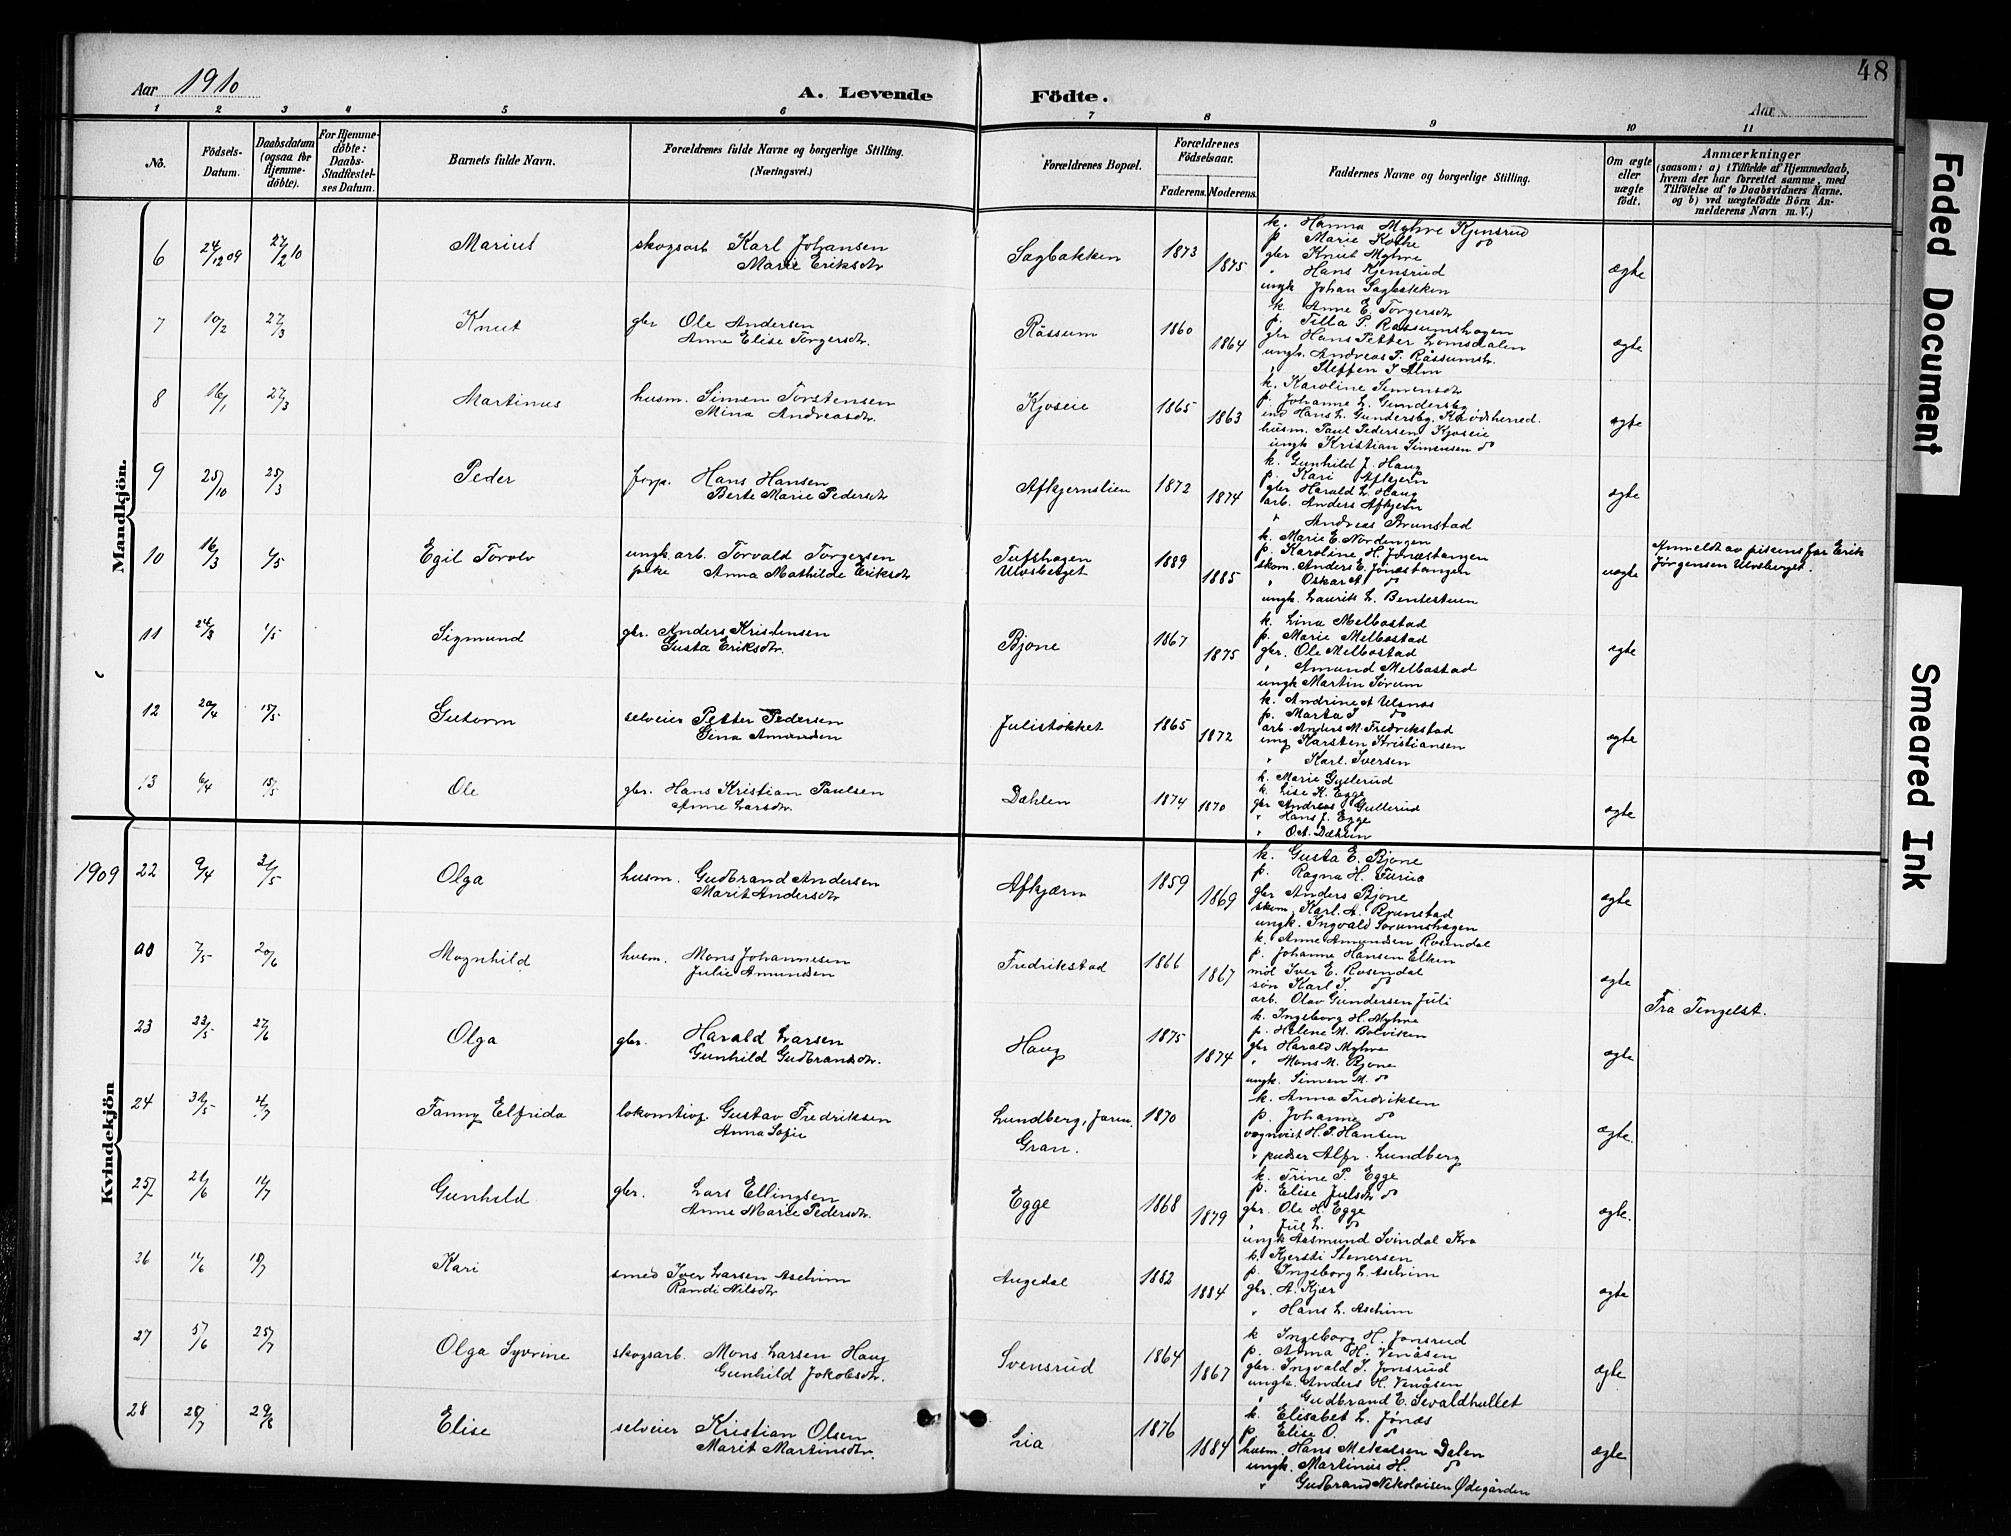 48
Aar 1910
A. Levende Födte.
Aar
1 2 3 4 5 6 7 8 9 10 11
No.
Födsels-Datum.
Daabsdatum (ogsaa for Hjemme-döbte).
For Hjemme-döbte: Daabs-Stadfæstel-ses Datum.
Barnets fulde Navn.
Forældrenes fulde Navne og borgerlige Stilling. (Næringsvei.)
Forældrenes Bopæl.
Forældrenes Födselsaar.
Faderens. Moderens.
Faddernes Navne og borgerlige Stilling.
Om ægte eller uægte födt.
Anmærkninger
(saasom: a) i Tilfælde af Hjemmedaab,
hvem der har forrettet samme, med
Tilföielse af to Daabsvidners Navne.
og b) ved uægtefödte Börn An-
melderens Navn m. V.)
Mandkjön.
6 24/12 09 27/2 10 Marius skogsarb Karl Johansen
Marie Eriksdtr
Sagbakken 1873 1875
k. Hanna Myhre Kjensrud
p. Marie Kothe do
gbr Knut Myhre
" Hans Kjensrud
ungk Johan Sagbakken
ægte
7 10/2 27/3 Knut gbr Ole Andersen
Anne Elise Torgersdtr.
Råssum 1860 1864
k. Anne E. Torgersdtr
p. Tilla P. Råssumshagen
gbr Hans Petter Lomsdalen
ungk. Andreas P. Råssumsh.
" Steffen J Alm
ægte
8 16/1 27/3 Martinus husm. Simen Torstensen
Mina Andreasdtr.
Kjoseie 1865 1863
k. Karoline Simensdtr
p. Johanne L. Gundersby
ung Hans L. Gundersby, Krødsherred.
husm. Paul Pedersen Kjoseie
ungk Kristian Simensen do
ægte
9 25/10 25/3 Peder forp. Hans Hansen
Berte Marie Pedersdtr
Afkjernslien 1872 1874
k. Gunhild J. Haug
p. Kari Afkjern
gbr Harald L. Haug
arb. Anders Afkjern
" Andreas Brunstad
ægte
10 16/3 1/5 Egil Torolv ungk arb. Torvald Torgersen
pike Anna Mathilde Eriksdtr
Tufshagen
Ulvsberget
1889 1885
k. Marie E. Nordengen
p. Karoline H. Jonæstangen
skom. Anders E. Jönæstangen
" Oskar A do
ungk. Laurits L. Bentestuen
uægte
Anmeldt av pikens far Erik
Jörgensen Ulvsberget.
11 24/3 1/5 Sigmund gbr. Anders Kristensen
Gusta Eriksdtr.
Bjone 1867 1875
k. Lina Melbostad
p. Marie Melbostad
gbr. Ole Melbostad
" Amund Melbostad
ungk Martin Sørum
ægte
12 20/4 15/5 Gutorm selveier Petter Pedersen
Gina Amundsen
Julistokket 1865 1872
k. Andrine A Ulsnæs
p. Marta J. do
arb. Anders M. Fredrikstad
ung Karsten Kristiansen
" Karl. Iversen
ægte
13 6/4 15/5 Ole gbr. Hans Kristian Paulsen
Anne Larsdtr.
Dæhlen 1874 1870
k. Marie Gullerud
k. Lise K. Egge
gbr Andreas Gullerud
" Hans J. Egge
" O.A. Dæhlin
ægte
Kvindekjön
1909
22 9/4 31/5 Olga husm. Gudbrand Andersen
Marit Andersdtr
Afkjærn 1859 1869
k. Gusta E. Bjone
p. Ragna H. Furua
gbr Anders Bjone
skom. Karl. A. Brunstad
ungk. Ingvald Sorumshagen
ægte
7/5 20/6 Magnhild husm. Mons Johannesen
Julie Amundsen
Fredrikstad 1866 1867
k. Anne Amundsen Rosendal
p. Johanne Hansen Elken
møl Iver E. Rosendal
søn Karl I. do
arb. Olav Gundersen Juli
ægte
Fra Tingelst.
23 23/5 27/6 Olga gbr. Harald Larsen
Gunhild Gudbrandsdtr.
Haug 1875 1874
k. Ingeborg H. Myhre
p. Helene M. Bolviken
gbr Harald Myhre
" Mons M. Bjone
ungk. Simen M. do
ægte
24 31/5 4/7 Fanny Elfrida lokomtivf. Gustav Fredriksen
Anna Sofie
Lundberg, Jaren.
Gran.
1870
k. Anna Fredriksen
p. Johanne do
vognvist H. P. Hansen
" pudser Alfr. Lundberg
ægte.
25 21/6 11/7 Gunhild gbr. Lars Ellingsen
Anne Marie Pedersdtr.
Egge 1868 1879
k. Trine P. Egge
p. Elise Julsdtr do
gbr. Ole H. Egge
" Jul L. do
ungk Aasmund Svindal Kra
ægte.
26 14/6 18/7 Kari smed Iver Larsen Aschim
Randi Nilsdtr
Augedal 1882 1884
k. Kjersti Stenersen
p. Ingeborg L. Aschim
gbr. A. Kjær
" Hans L. Aschim
ægte
27 5/6 25/7 Olga Syvrine skogsarb. Mons Larsen Haug
Gunhild Jakobsdtr.
Svensrud 1864 1867
k Ingeborg H. Jonsrud
p. Anna H. Venåsen
gbr. Ingvald I. Jonsrud
ungk. Anders H. Venåsen
" Gudbrand E. Sevaldhullet
ægte
28 28/7 29/8 Elise selveier Kristian Olsen
Marit Martinsdtr.
Lia 1876 1884
k. Elisabet L. Jønæs
p. Elise O. do
husm. Hans Mekalsen Dalen
ungk. Martinus H. do
" Gudbrand Nikolaisen Ødegården
ægte
Faded Document
Smeared Ink